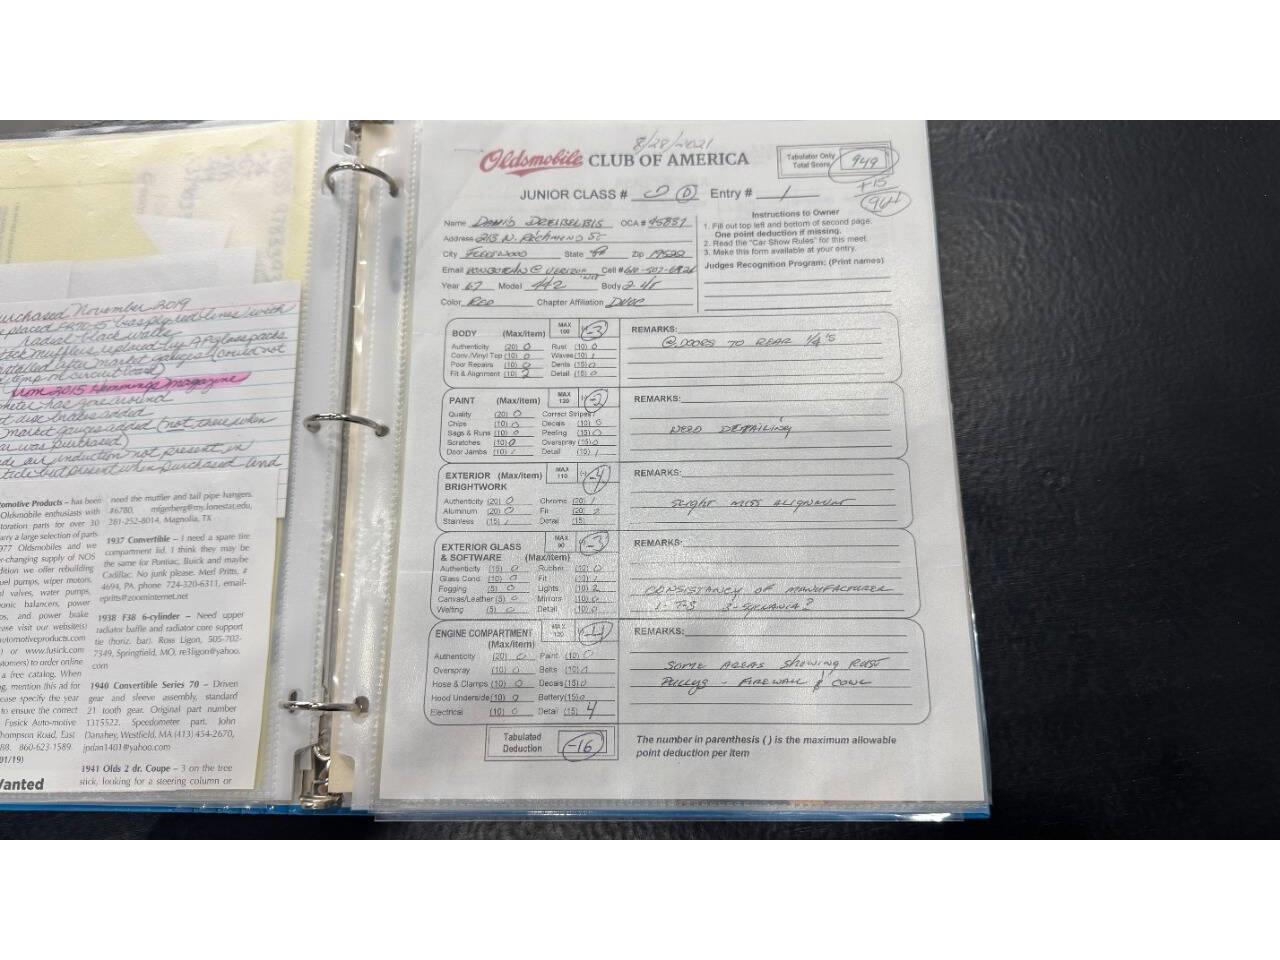 purchased November 2019
radial black walls
tick mufflers replaced by AP glass packs
from 2015 Hemmings Magazine
meter has gone around
t disc brakes added
market gauges added (not there when
car was purchased)
de air induction not present in
ticle but present when purchased and
omotive Products – has been
Oldsmobile enthusiasts with
toration parts for over 30
arry a large selection of parts
977 Oldsmobiles and we
r-changing supply of NOS
dition we offer rebuilding
uel pumps, wiper motors,
l valves, water pumps,
onic balancers, power
ps, and power brake
ease visit our website(s)
utomotiveproducts.com
) or www.fusick.com
tomers) to order online
a free catalog. When
g, mention this ad for
ease specify the year
to ensure the correct
Fusick Auto-motive
hompson Road, East
88. 860-623-1589.
01/19)
Wanted
need the muffler and tail pipe hangers.
#6780, mfgerberg@my.lonestat.edu,
281-252-8014, Magnolia, TX
1937 Convertible – I need a spare tire
compartment lid. I think they may be
the same for Pontiac, Buick and maybe
Cadillac. No junk please. Merl Pritts, #
4694, PA phone 724-320-6311, email-
epritts@zoominternet.net
1938 F38 6-cylinder – Need upper
radiator baffle and radiator core support
tie (horiz. bar). Ross Ligon, 505-702-
7349, Springfield, MO, re3ligon@yahoo.
com
1940 Convertible Series 70 – Driven
gear and sleeve assembly, standard
21 tooth gear. Original part number
1315522. Speedometer part. John
Danahey, Westfield, MA (413) 454-2670,
jpdan1401@yahoo.com
1941 Olds 2 dr. Coupe – 3 on the tree
stick, looking for a steering column or
8/28/2021
Oldsmobile CLUB OF AMERICA
Tabulator Only
Total Score 949
+15
964
JUNIOR CLASS # D Entry # 1
Name DAVID DREIBELBIS OCA # 45837
Address 213 N. RICHMOND ST
City FLEETWOOD State PA Zip 19522
Email Cell #
Year 67 Model 442 Body 2 dr
Color RED Chapter Affiliation DVOC
Instructions to Owner
1. Fill out top left and bottom of second page.
One point deduction if missing.
2. Read the "Car Show Rules" for this meet.
3. Make this form available at your entry.
Judges Recognition Program: (Print names)
BODY (Max/item) MAX 100 (-) -3
Authenticity (20) 0 Rust (10) 0
Conv./Vinyl Top (10) 0 Waves (10) 1
Poor Repairs (10) 0 Dents (15) 0
Fit & Alignment (10) 2 Detail (15) 0
REMARKS:
@ DOORS TO REAR 1/4'S
PAINT (Max/item) MAX 120 (-) -2
Quality (20) 0 Correct Stripes
Chips (10) 0 Decals (10) 0
Sags & Runs (10) 0 Peeling (15) 0
Scratches (10) 0 Overspray (15) 0
Door Jambs (10) 1 Detail (15) 1
REMARKS:
NEED DETAILING
EXTERIOR (Max/item) MAX 110 (-) -4
BRIGHTWORK
Authenticity (20) 0 Chrome (20) 1
Aluminum (20) 0 Fit (20) 2
Stainless (15) 1 Detail (15)
REMARKS:
SLIGHT MISS ALIGNMENT
EXTERIOR GLASS MAX 90 (-) -3
& SOFTWARE (Max/item)
Authenticity (15) 0 Rubber (10) 0
Glass Cond. (10) 0 Fit (10) 1
Fogging (5) 0 Lights (10) 2
Canvas/Leather (5) 0 Mirrors (10) 0
Welting (5) 0 Detail (10) 0
REMARKS:
CONSISTANCY OF MANUFACTURER
1 - T-3 3 - SYLVANIA?
ENGINE COMPARTMENT MAX 130 (-) -4
(Max/item)
Authenticity (20) 0 Paint (10) 0
Overspray (10) 0 Belts (10) 0
Hose & Clamps (10) 0 Decals (15) 0
Hood Underside (10) 0 Battery (15) 0
Electrical (10) 0 Detail (15) 4
REMARKS:
SOME AREAS SHOWING RUST
PULLYS - FIREWALL & COWL
Tabulated
Deduction -16
The number in parenthesis ( ) is the maximum allowable
point deduction per item